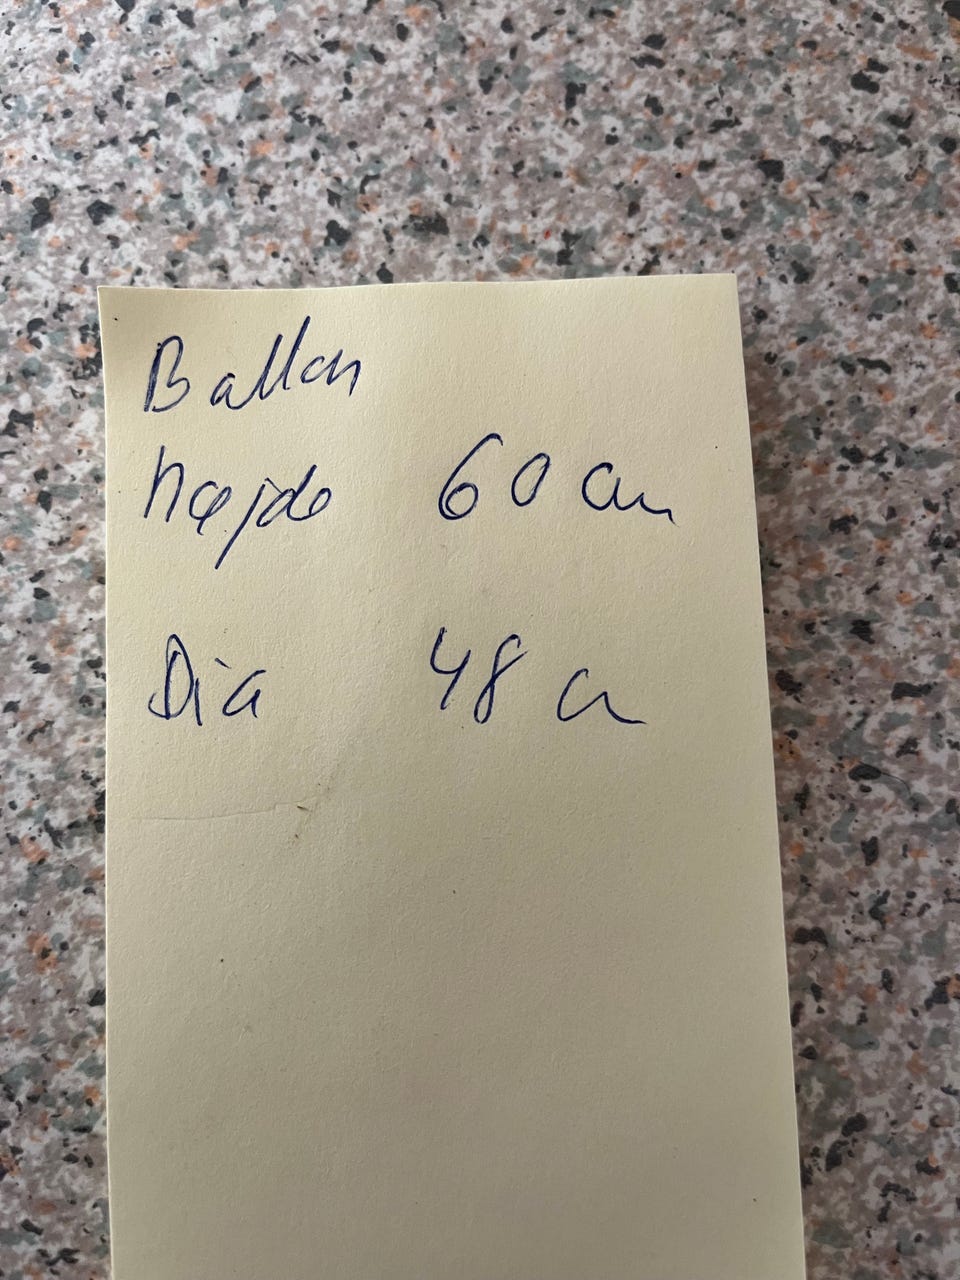 Ballon
højde 60 cm
Dia 48 c